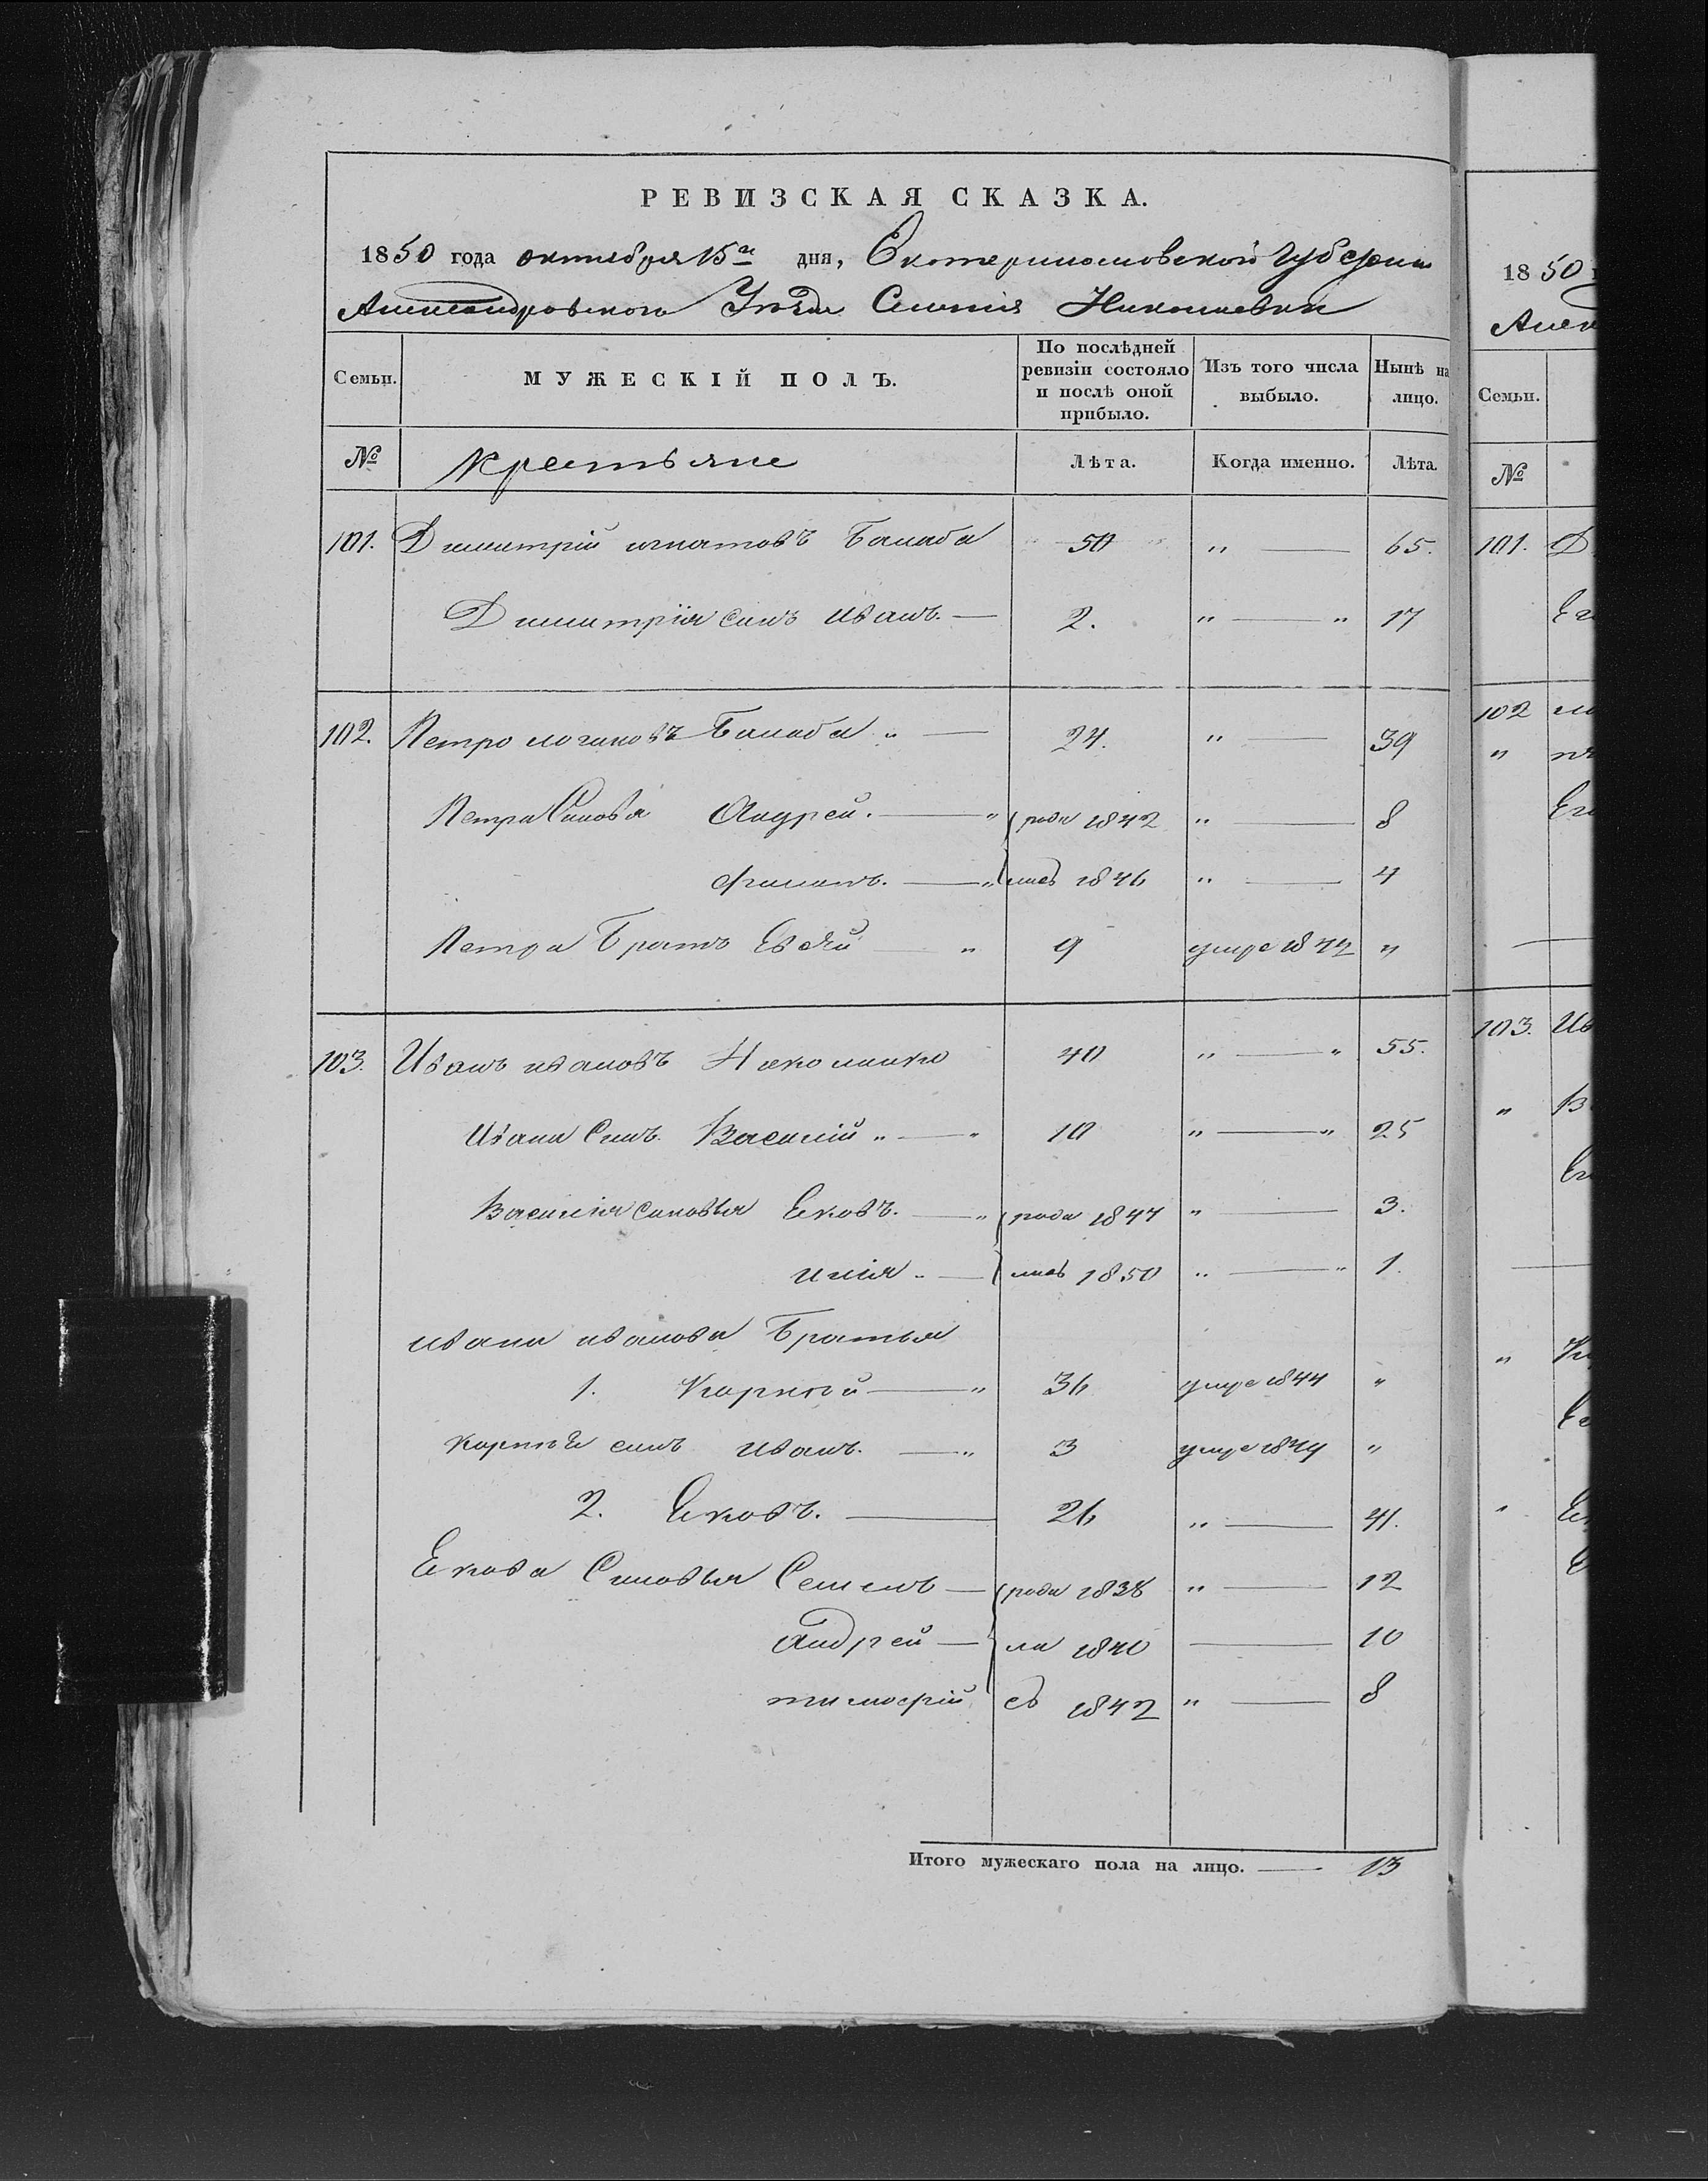 РЕВИЗСКАЯ СКАЗКА.
1850 года октября 15го дня, Екатеринославской Губернии
Александровского Уезда Селения Николаевки
Семьи. МУЖЕСКІЙ ПОЛЪ. По послѣдней ревизіи состояло и послѣ оной прибыло. Изъ того числа выбыло. Нынѣ на лицо.
№ крестьяне Лѣта. Когда именно. Лѣта.
101. Димитрій игнатовъ Балаба 50 " — 65.
Димитрія синъ иванъ. — 2. " — " 17
102. Петро логиновъ Балаба " — 24. " — 39
Петра Синовя Андрей. — " роди 1842 " — 8
филипъ. — " лись 1846 " — 4
Петра Братъ — " 9 умре 1842 "
103. Иванъ ивановъ 40 " — " 55.
Ивана Синъ. Василій " — " 10 " — " 25
Василія синовья Яковъ. — " роди 1847 " — 3.
илія " — лись 1850 " — " 1.
ивана иванова Братья
1. Карпей — " 36 умре 1844 "
карпея синъ иванъ. — " 3 умре 1849 "
2. Яковъ. — 26 " — 41.
Якова Синовья Семенъ — роди 1838 " — 12
Андрей — ли 1840 — 10
тимофій сь 1842 " — 8
Итого мужескаго пола на лицо. — 13
1850
Алек
Семьи.
№
101. Д
Ег
102
"
Ег
103. Ив
" В
Ег
"
"